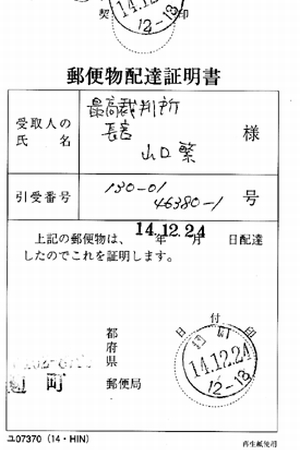 契 印
14.12.
12-18
郵便物配達証明書
受取人の
氏 名
最高裁判所
長官
山口繁
様
引受番号
130-01
46380-1
号
上記の郵便物は、 14.12.24 年 月 日配達
したのでこれを証明します。
日 付 印
都
府
県
郵便局
麹 町
麹町
14.12.24
12-18
ユ07370 (14・HIN)
再生紙使用